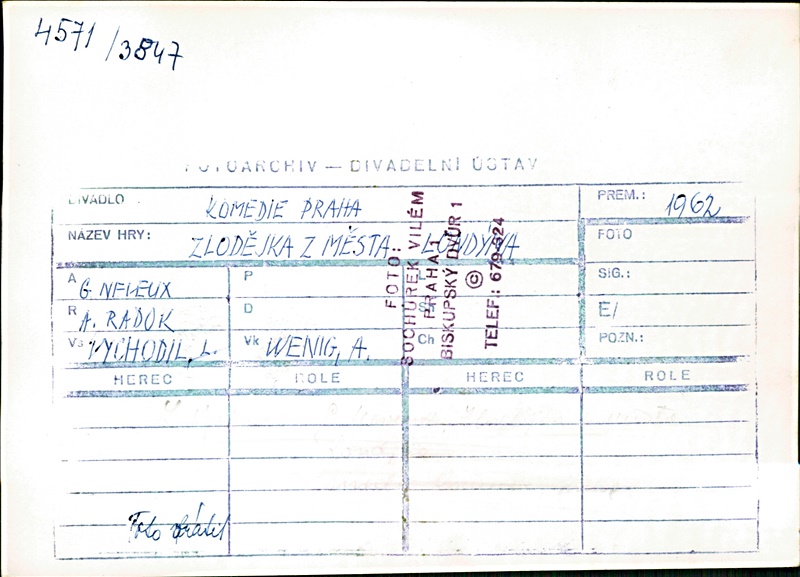 4571/3847
FOTOARCHIV — DIVADELNÍ ÚSTAV
DIVADLO KOMEDIE PRAHA
PREM.: 1962
NÁZEV HRY: ZLODĚJKA Z MĚSTA LONDÝNA
FOTO
A G. NEVEUX
P
L
SIG.:
R A. RADOK
D
E/
Vs VYCHODIL, L.
Vk WENIG, A.
Ch
POZN.:
HEREC ROLE HEREC ROLE
FOTO:
SOCHŮREK VILÉM
PRAHA
BISKUPSKÝ DVŮR 1
©
TELEF.: 679 524
Foto vrátil